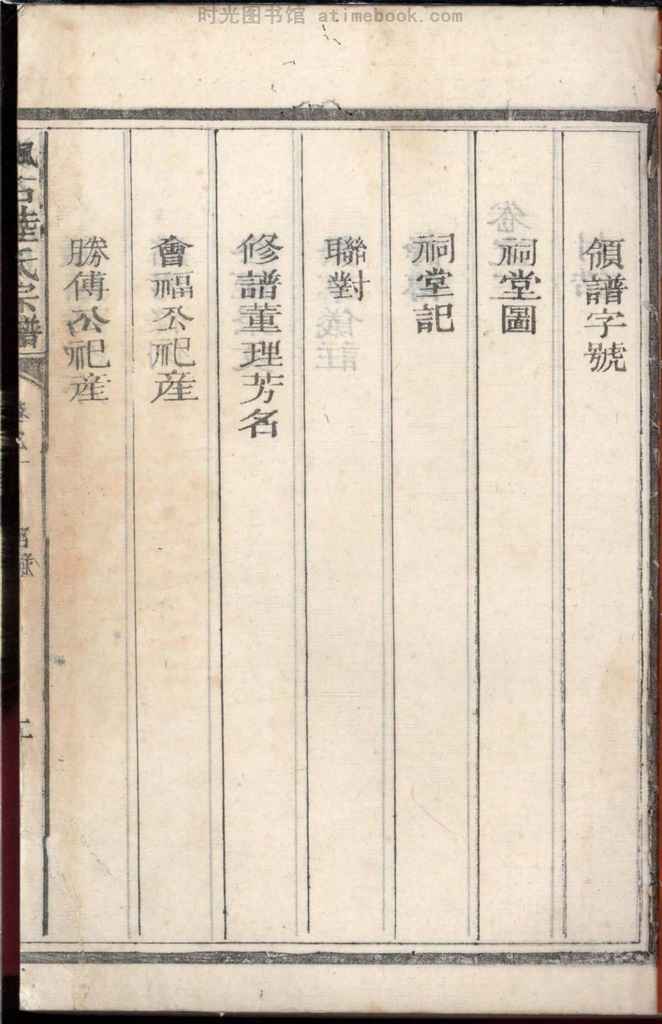 时光图书馆 atimebook.com
領譜字號
祠堂圖
祠堂記
聯對
修譜董理芳名
會福公祀産
勝傅公祀産
陸氏宗譜